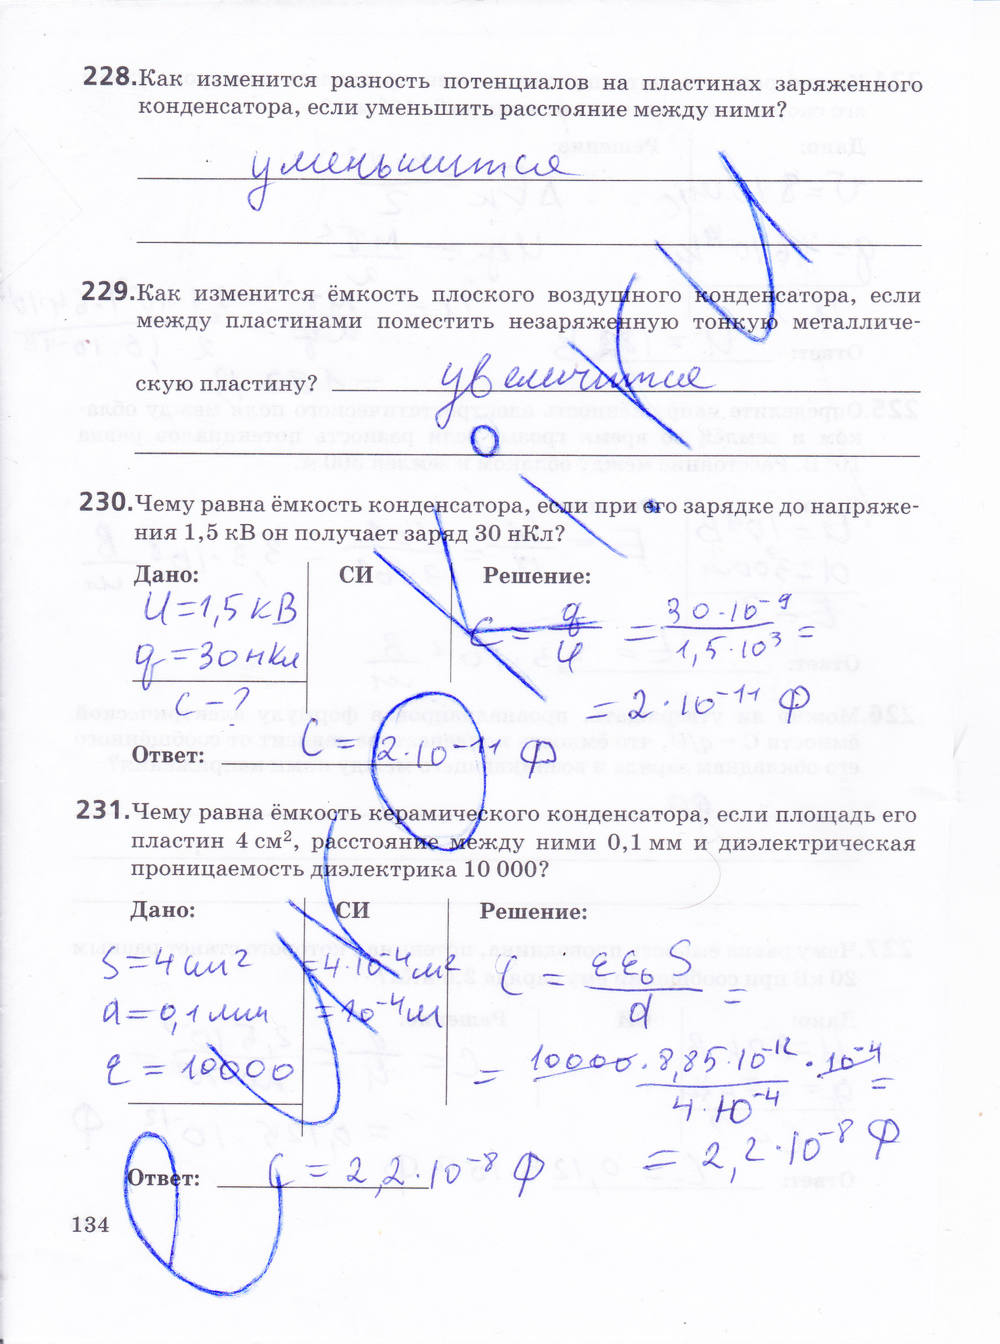 228. Как изменится разность потенциалов на пластинах заряженного
конденсатора, если уменьшить расстояние между ними?
уменьшится
229. Как изменится ёмкость плоского воздушного конденсатора, если
между пластинами поместить незаряженную тонкую металличе-
скую пластину? увеличится
230. Чему равна ёмкость конденсатора, если при его зарядке до напряже-
ния 1,5 кВ он получает заряд 30 нКл?
Дано: СИ Решение:
U = 1,5 кВ
q = 30 нКл
C - ?
C = q/φ = 30·10⁻⁹/1,5·10³ =
= 2·10⁻¹¹ Ф
Ответ: C = 2·10⁻¹¹ Ф
231. Чему равна ёмкость керамического конденсатора, если площадь его
пластин 4 см², расстояние между ними 0,1 мм и диэлектрическая
проницаемость диэлектрика 10 000?
Дано: СИ Решение:
S = 4 см² = 4·10⁻⁴ м²
d = 0,1 мм = 10⁻⁴ м
ε = 10000
C = εε₀S/d =
= 10000·8,85·10⁻¹²·10⁻⁴/4·10⁻⁴ =
= 2,2·10⁻⁸ Ф
Ответ: C = 2,2·10⁻⁸ Ф
134